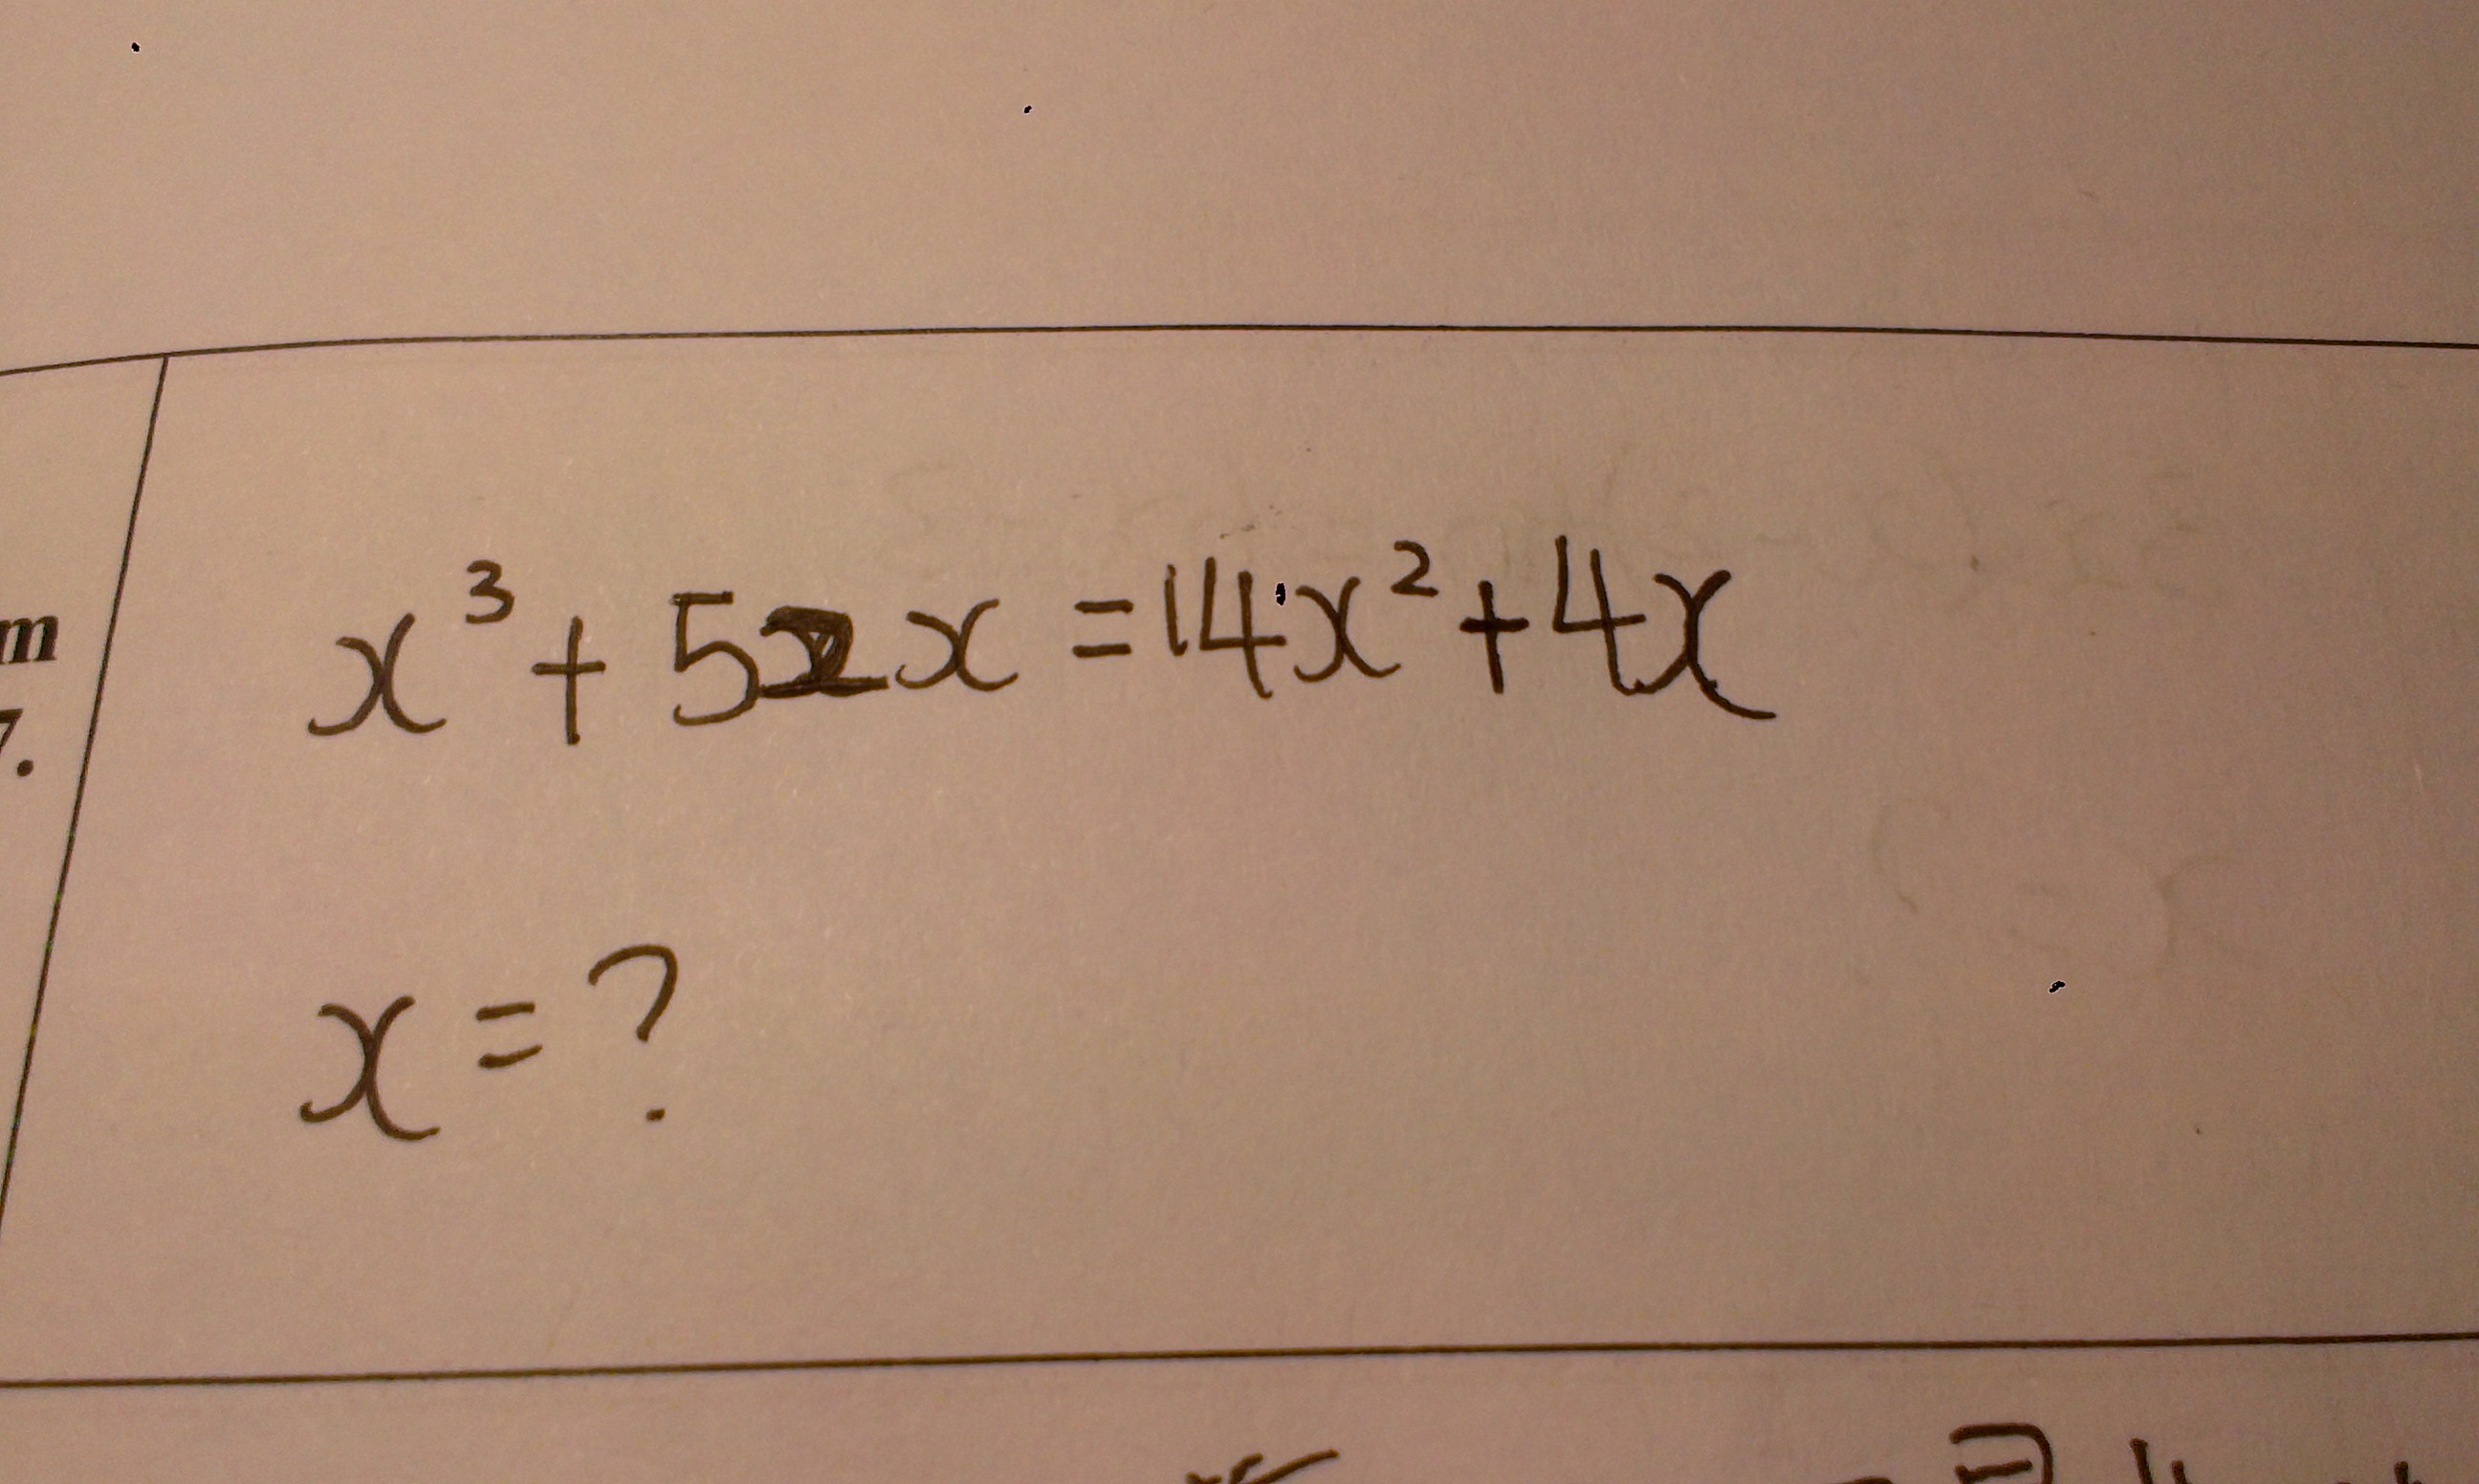 m
7.
x³ + 52x = 14x² + 4x
x = ?